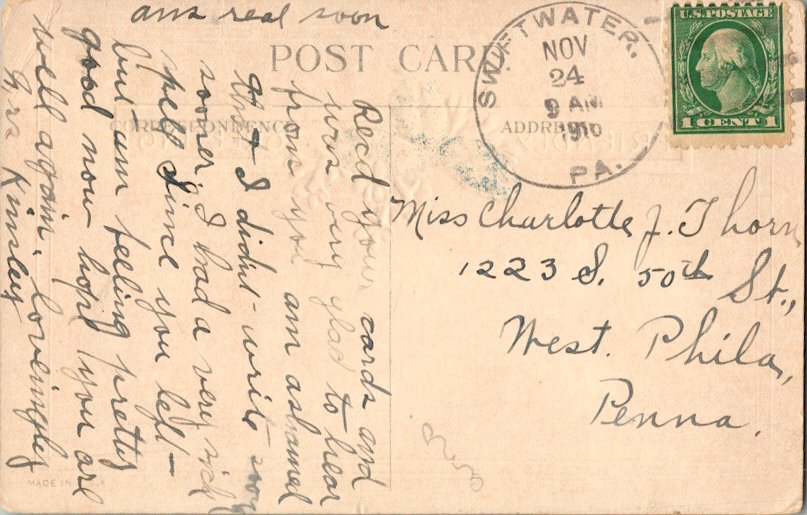 ans real soon
POST CARD.
CORRESPONDENCE
ADDRE
SWIFTWATER,
NOV
24
9 AM
1916
PA.
U.S. POSTAGE
1 CENT 1
Recd your cards and
was very glad to hear
from you am ashamed
that I didnt write
sooner. I had a very sick
spel since you left—
but am feeling pretty
good now hope you are
well again. loveingly
Kinsley
Miss Charlotte J. Thorn
1223 S. 50th St.,
West. Phila,
Penna.
MADE IN